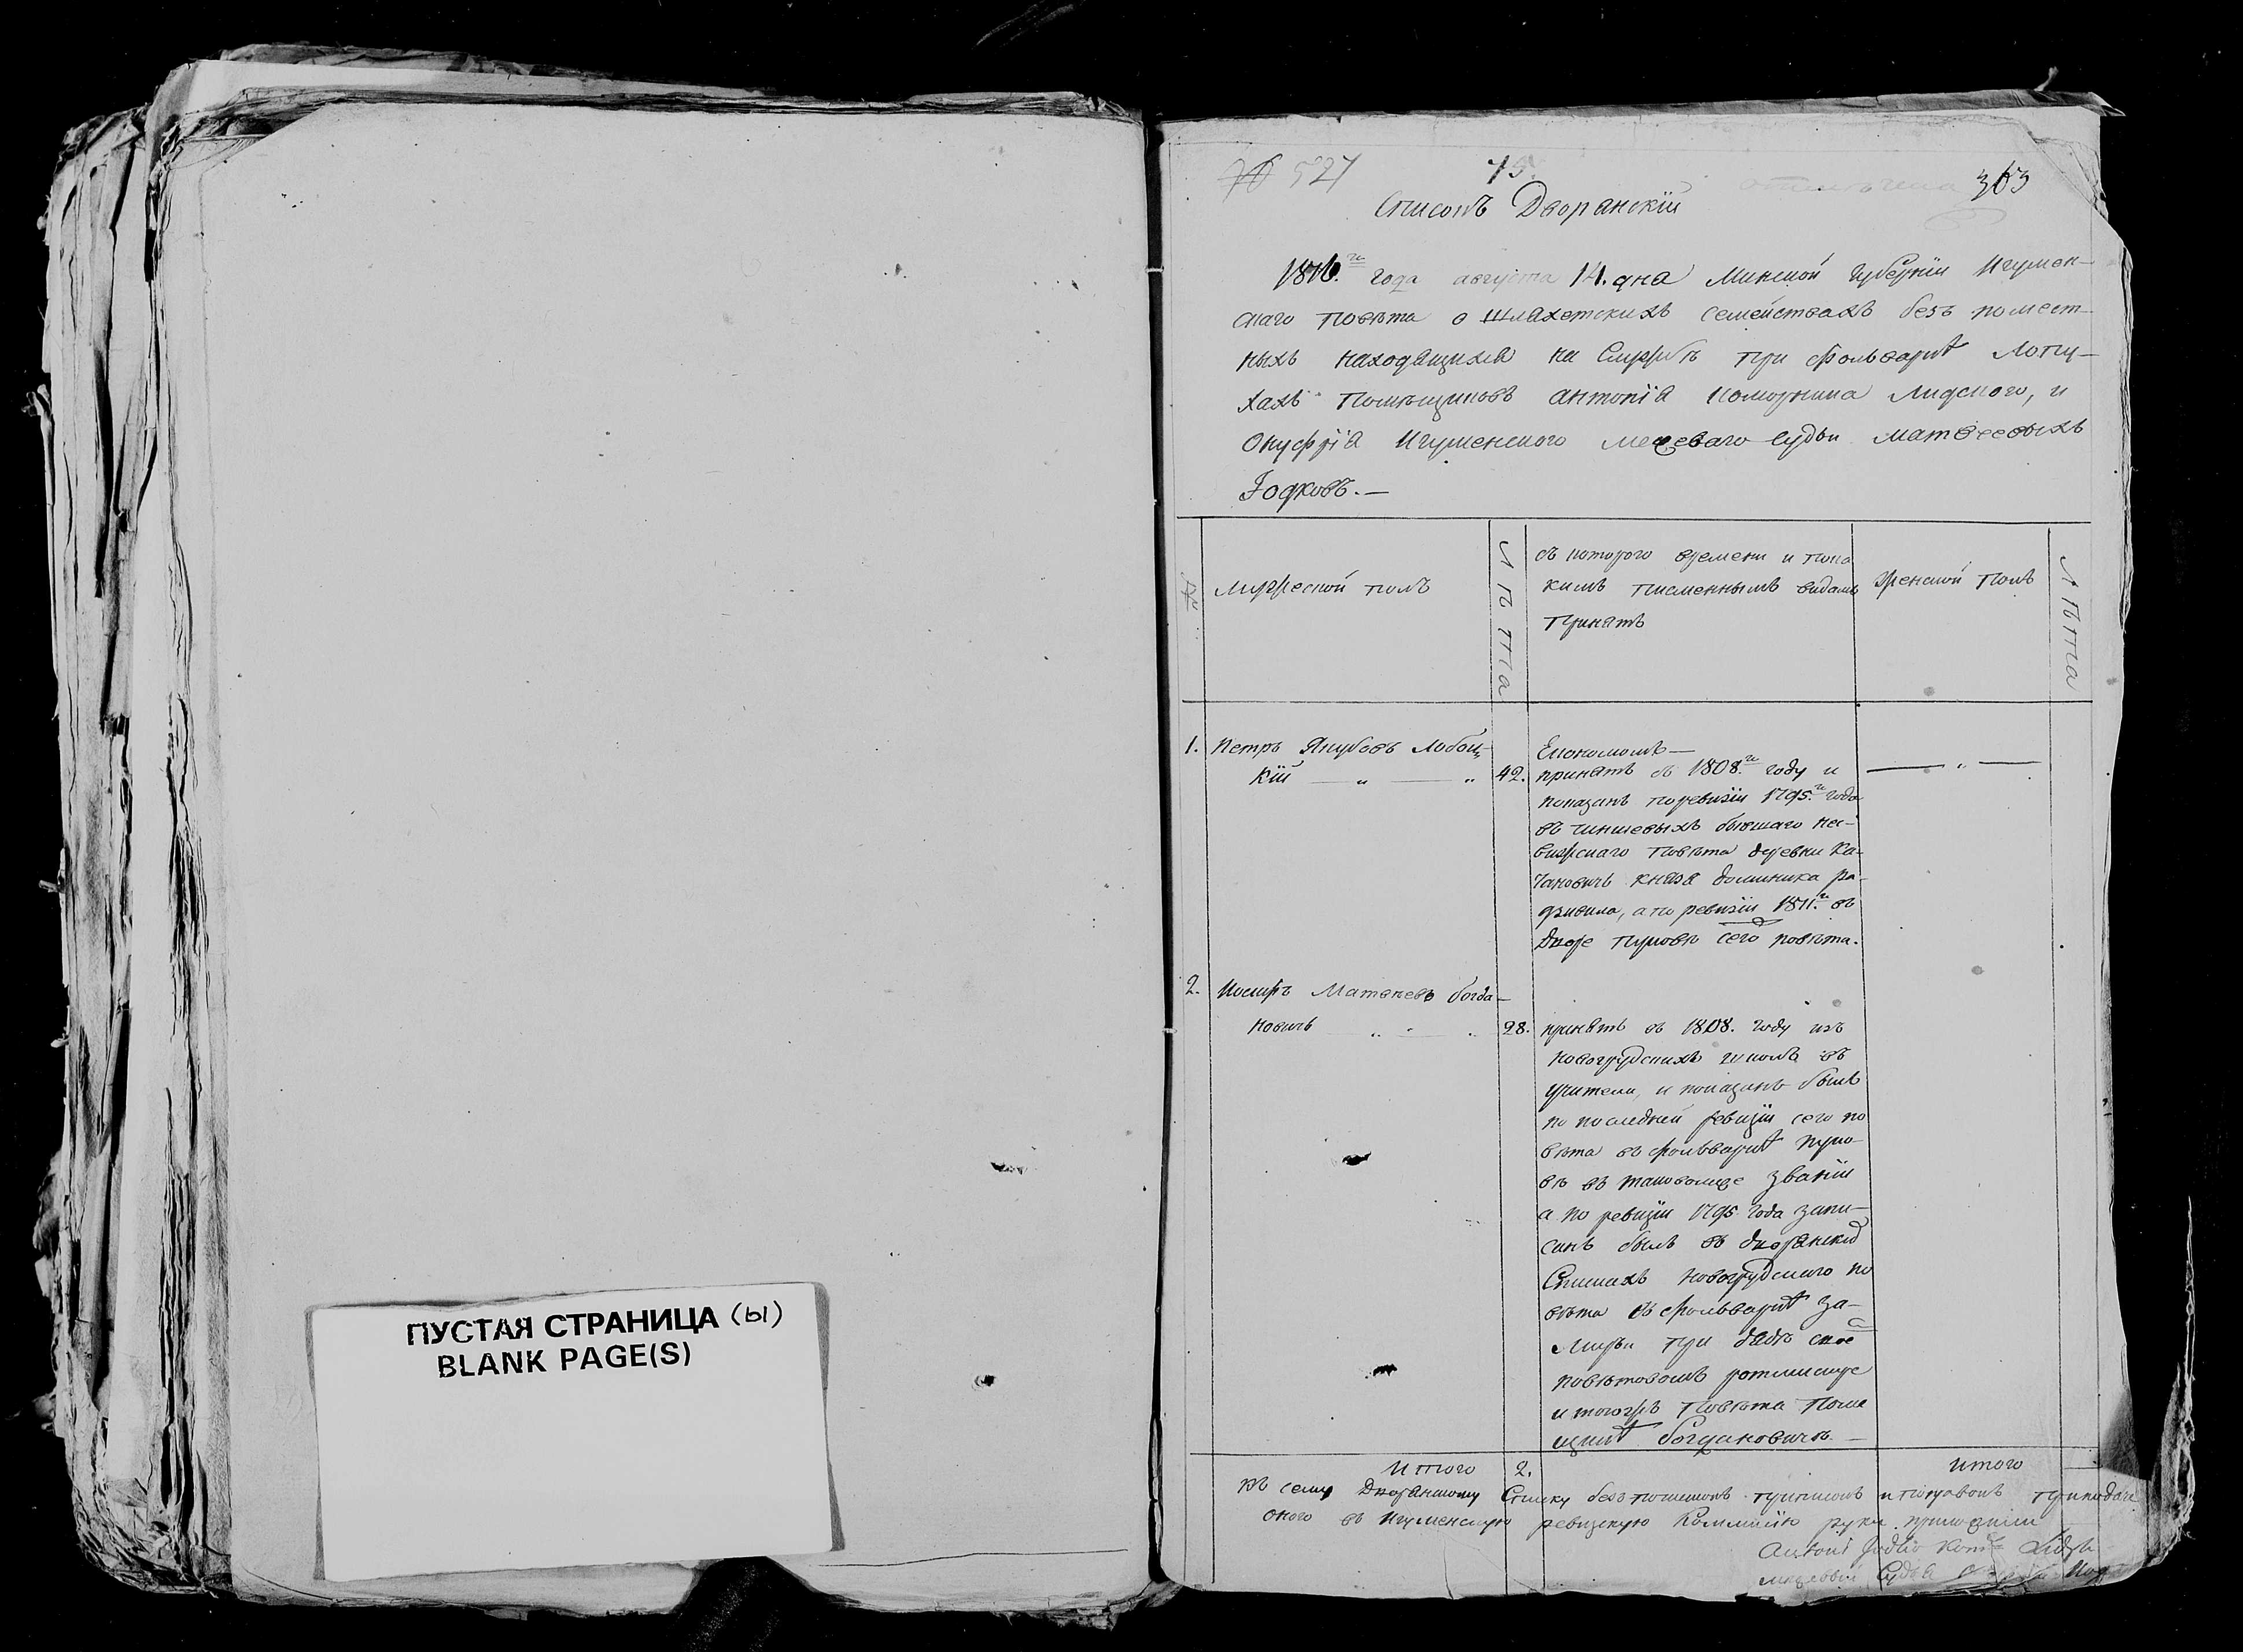 ПУСТАЯ СТРАНИЦА (ы)
BLANK PAGE(S)
527
75.
363
Списокъ Дворянскій
1816.го года августа 14. дня Минской Губерніи Игумен-
скаго Повѣта о Шляхетскихъ семействахъ безъ помест-
ныхъ находящихся на Службѣ при фольваркѣ Лопу-
хахъ Помѣщиковъ Антонія Коморника Лидского, и
Онуфрія Игуменского межеваго Судьи Матвеевыхъ
Іодковъ. —
№
Мужеской полъ
Лѣта
съ которого времени и пока
кимъ писменнымъ видамъ
принятъ
Женской Полъ
Лѣта
1. Петръ Якубовъ Лобоц-
кій — „ — „ 42.
Економомъ —
принятъ въ 1808.го году и
показанъ поревизіи 1795.го года
въ чиншевыхъ бывшаго Нес-
вижскаго Повѣта деревни Ка-
чановичъ Князя Доминика Ра-
дзивила, а по ревизіи 1811.го въ
Дворе сего повѣта.
— „ —
2. Иосифъ Матвѣевъ Богда-
новичъ 28.
принятъ въ 1808. году изъ
Новогрудскихъ школъ въ
учители, и показанъ былъ
по последней ревизіи сего по
вѣта въ фольваркѣ
въ таковомже званіи
а по ревизіи 1795 года запи-
санъ былъ въ дворянскихъ
Спискахъ Новогрудскаго по
вѣта въ фольваркѣ За-
при дядѣ свое
повѣтовомъ ротмистре
и тогожъ Повѣта Поме
щикѣ Богдановичѣ —
Итого 2. итого
Къ сему Дворянскому Списку безъ приписокъ и поправокъ приподаче
оного въ Игуменскую ревизскую Коммисію руки приложили
Antoni
Судья